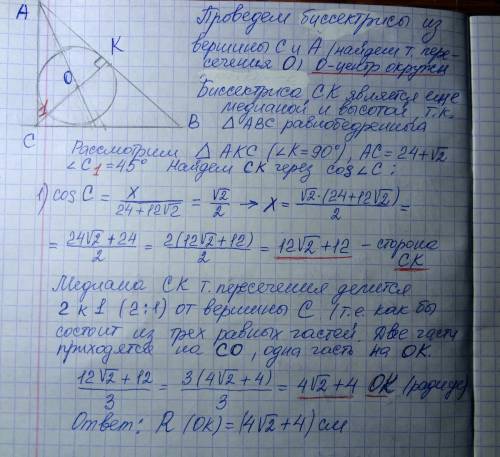 A
Проведем биссектрисы из
вершины С и А (найдем т. пере-
сечения О) О-центр окружн
K
O
Биссектриса СК является еще
медианой и высотой т.к.
1
C
B
△ABC равнобедренный
Рассмотрим △ AKC (∠K=90°), AC = 24+√2
∠C1=45° Найдем СК через cos∠C:
1) cos C = x/(24+12√2) = √2/2 → x = √2·(24+12√2)/2 =
= (24√2+24)/2 = 2(12√2+12)/2 = 12√2+12 – сторона
CK
Медиана СК т. пересечения делится
2 к 1 (2:1) от вершины С (т.е как бы
состоит из трех равных частей. Две части
приходятся на СО, одна часть на ОК.
(12√2+12)/3 = 3(4√2+4)/3 = 4√2+4 OK (радиус)
Ответ: R (OK) = (4√2+4) см